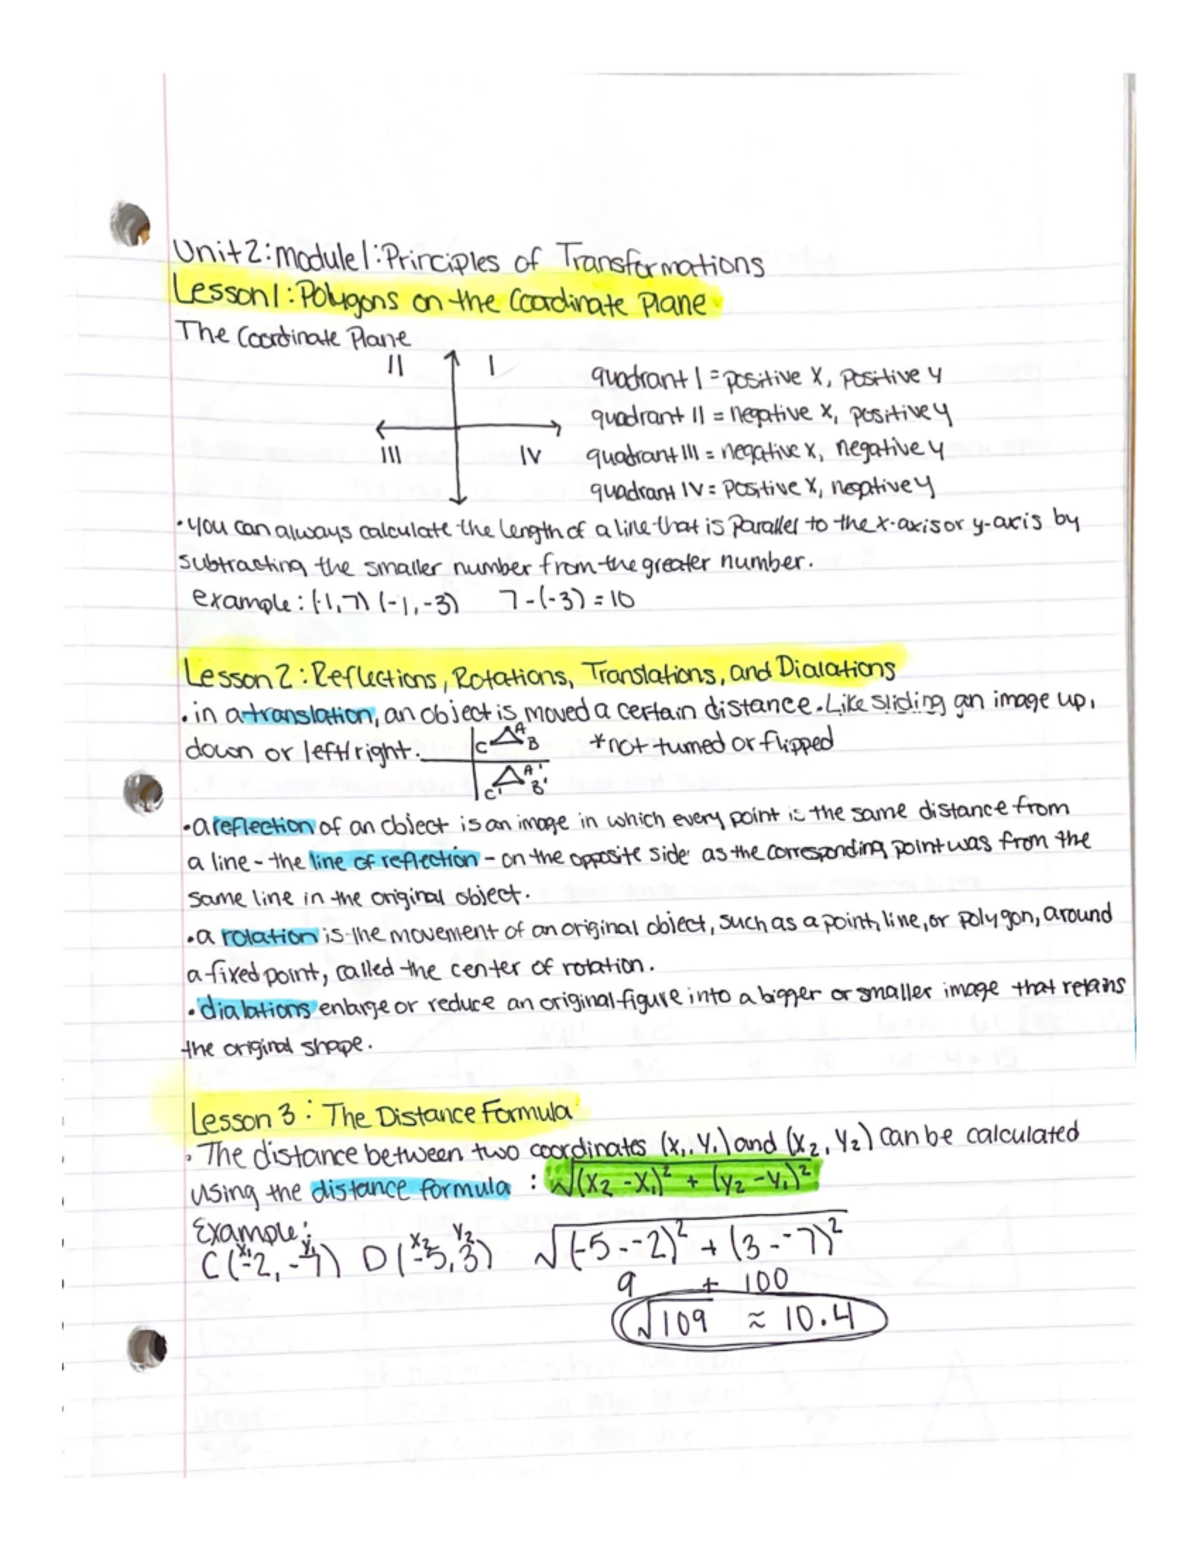 Unit 2: Module 1: Principles of Transformations
Lesson 1: Polygons on the Coordinate Plane
The Coordinate Plane
II I
III IV
quadrant I = positive x, positive y
quadrant II = negative x, positive y
quadrant III = negative x, negative y
quadrant IV = positive x, negative y
• you can always calculate the length of a line that is parallel to the x-axis or y-axis by
subtracting the smaller number from the greater number.
example: (-1, 7) (-1, -3) 7 - (-3) = 10
Lesson 2: Reflections, Rotations, Translations, and Dialations
• in a translation, an object is moved a certain distance. Like sliding an image up,
down or left/right. *not turned or flipped
C A B
C' A' B'
• a reflection of an object is an image in which every point is the same distance from
a line - the line of reflection - on the opposite side as the corresponding point was from the
same line in the original object.
• a rotation is the movement of an original object, such as a point, line, or polygon, around
a fixed point, called the center of rotation.
• dialations enlarge or reduce an original figure into a bigger or smaller image that retains
the original shape.
Lesson 3: The Distance Formula
• The distance between two coordinates (x₁, y₁) and (x₂, y₂) can be calculated
using the distance formula : √(x₂ - x₁)² + (y₂ - y₁)²
Example:
x₁ y₁ x₂ y₂
C(-2, -7) D(-5, 3) √(-5 - -2)² + (3 - -7)²
9 + 100
√109 ≈ 10.4